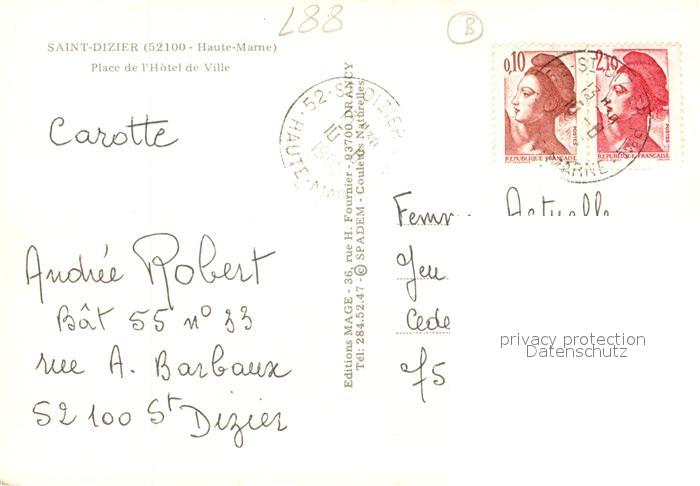 L88
B
SAINT-DIZIER (52100 - Haute-Marne)
Place de l'Hôtel de Ville
Carotte
Andrée Robert
Bât 55 n° 33
rue A. Barbaux
52 100 St Dizier
Editions MAGE - 36, rue H. Fournier - 93700 DRANCY
Tél: 284.52.47 - © SPADEM - Couleurs Naturelles
52-ST DIZIER
HAUTE-MARNE
0,10
POSTES
REPUBLIQUE FRANÇAISE
2,10
POSTES
REPUBLIQUE FRANÇAISE
Actuelle
Jeu
75
privacy protection
Datenschutz